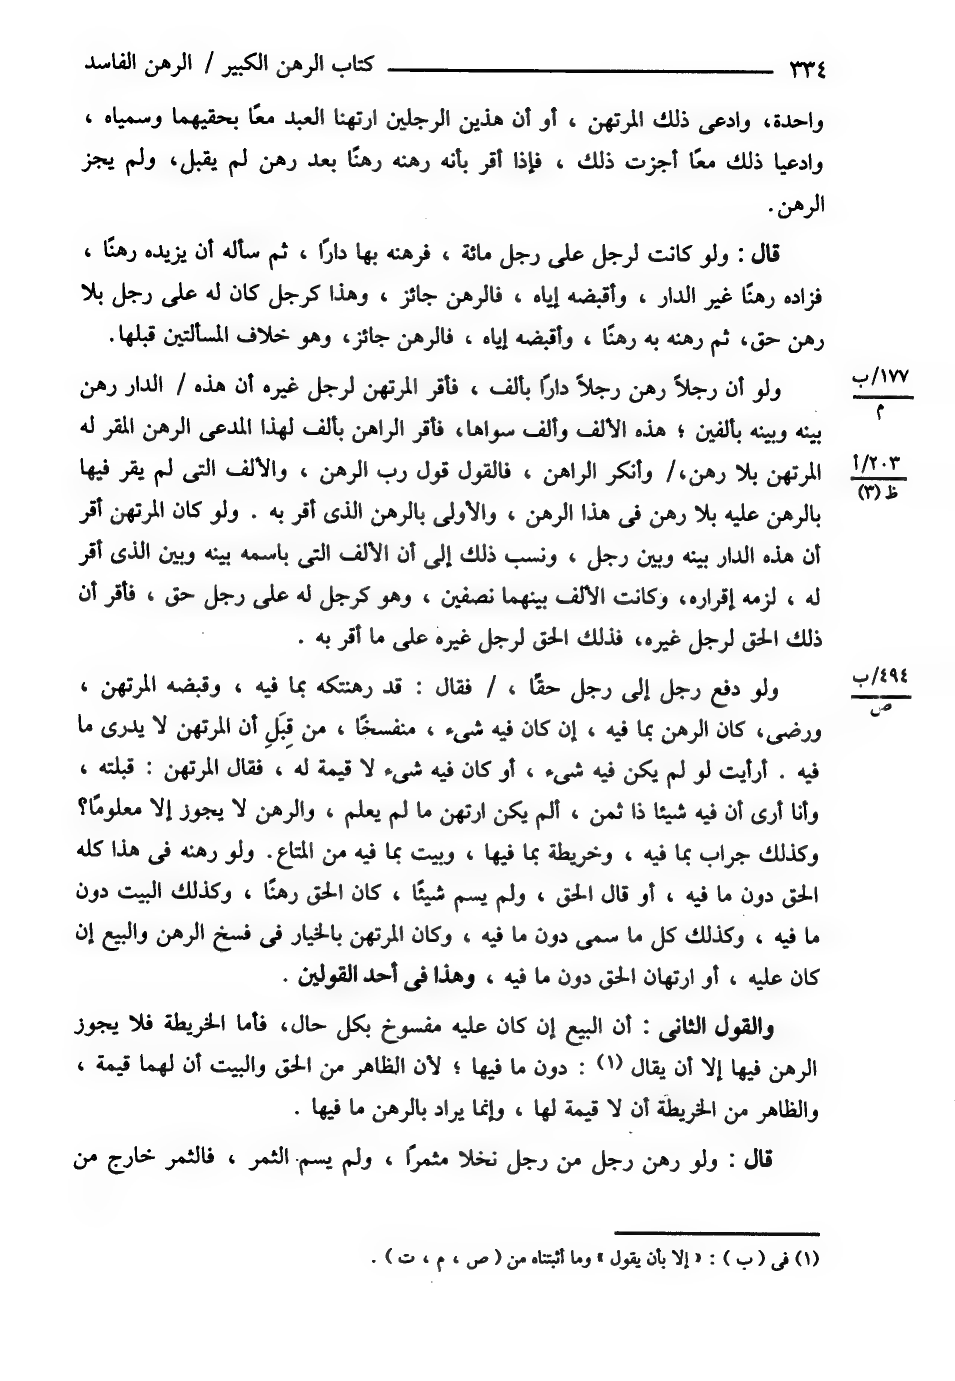 ٣٣٤ كتاب الرهن الكبير / الرهن الفاسد
واحدة، وادعى ذلك المرتهن ، أو أن هذين الرجلين ارتهنا العبد معًا بحقيهما وسمياه ،
وادعيا ذلك معًا أجزت ذلك ، فإذا أقر بأنه رهنه رهنًا بعد رهن لم يقبل، ولم يجز
الرهن.
قال : ولو كانت لرجل على رجل مائة ، فرهنه بها دارًا ، ثم سأله أن يزيده رهنًا ،
فزاده رهنًا غير الدار ، وأقبضه إياه ، فالرهن جائز ، وهذا كرجل كان له على رجل بلا
رهن حق، ثم رهنه به رهنًا ، وأقبضه إياه ، فالرهن جائز، وهو خلاف المسألتين قبلها.
ولو أن رجلاً رهن رجلاً دارًا بألف ، فأقر المرتهن لرجل غيره أن هذه / الدار رهن
١٧٧/ب
م
بينه وبينه بألفين ؛ هذه الألف وألف سواها، فأقر الراهن بألف لهذا المدعى الرهن المقر له
المرتهن بلا رهن،/ وأنكر الراهن ، فالقول قول رب الرهن ، والألف التى لم يقر فيها
٢٠٣/أ
ظ (٣)
بالرهن عليه بلا رهن فى هذا الرهن ، والأولى بالرهن الذى أقر به . ولو كان المرتهن أقر
أن هذه الدار بينه وبين رجل ، ونسب ذلك إلى أن الألف التى باسمه بينه وبين الذى أقر
له ، لزمه إقراره، وكانت الألف بينهما نصفين ، وهو كرجل له على رجل حق ، فأقر أن
ذلك الحق لرجل غيره، فذلك الحق لرجل غيره على ما أقر به .
ولو دفع رجل إلى رجل حقًا ، / فقال : قد رهنتكه بما فيه ، وقبضه المرتهن ،
٤٩٤/ب
ص
ورضى، كان الرهن بما فيه ، إن كان فيه شىء ، منفسخًا ، من قِبَلِ أن المرتهن لا يدرى ما
فيه . أرأيت لو لم يكن فيه شىء ، أو كان فيه شىء لا قيمة له ، فقال المرتهن : قبلته ،
وأنا أرى أن فيه شيئا ذا ثمن ، ألم يكن ارتهن ما لم يعلم ، والرهن لا يجوز إلا معلومًا؟
وكذلك جراب بما فيه ، وخريطة بما فيها ، وبيت بما فيه من المتاع. ولو رهنه فى هذا كله
الحق دون ما فيه ، أو قال الحق ، ولم يسم شيئًا ، كان الحق رهنًا ، وكذلك البيت دون
ما فيه ، وكذلك كل ما سمى دون ما فيه ، وكان المرتهن بالخيار فى فسخ الرهن والبيع إن
كان عليه ، أو ارتهان الحق دون ما فيه ، وهذا فى أحد القولين .
والقول الثانى : أن البيع إن كان عليه مفسوخ بكل حال، فأما الخريطة فلا يجوز
الرهن فيها إلا أن يقال (١) : دون ما فيها ؛ لأن الظاهر من الحق والبيت أن لهما قيمة ،
والظاهر من الخريطة أن لا قيمة لها ، وإنما يراد بالرهن ما فيها .
قال : ولو رهن رجل من رجل نخلا مثمرًا ، ولم يسم الثمر ، فالثمر خارج من
(١) فى (ب ) : « إلا بأن يقول » وما أثبتناه من ( ص ، م ، ت ) .